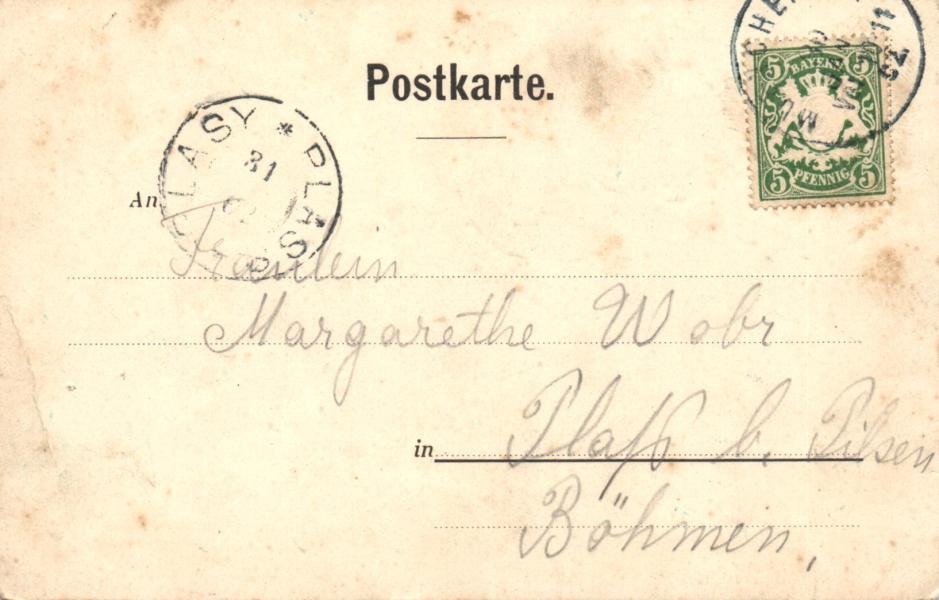 Postkarte.
5 BAYERN 5
5 PFENNIG 5
PLASY * PLASS
31
An
Fräulein
Margarethe Wobr
in Plaß b. Pilsen
Böhmen,